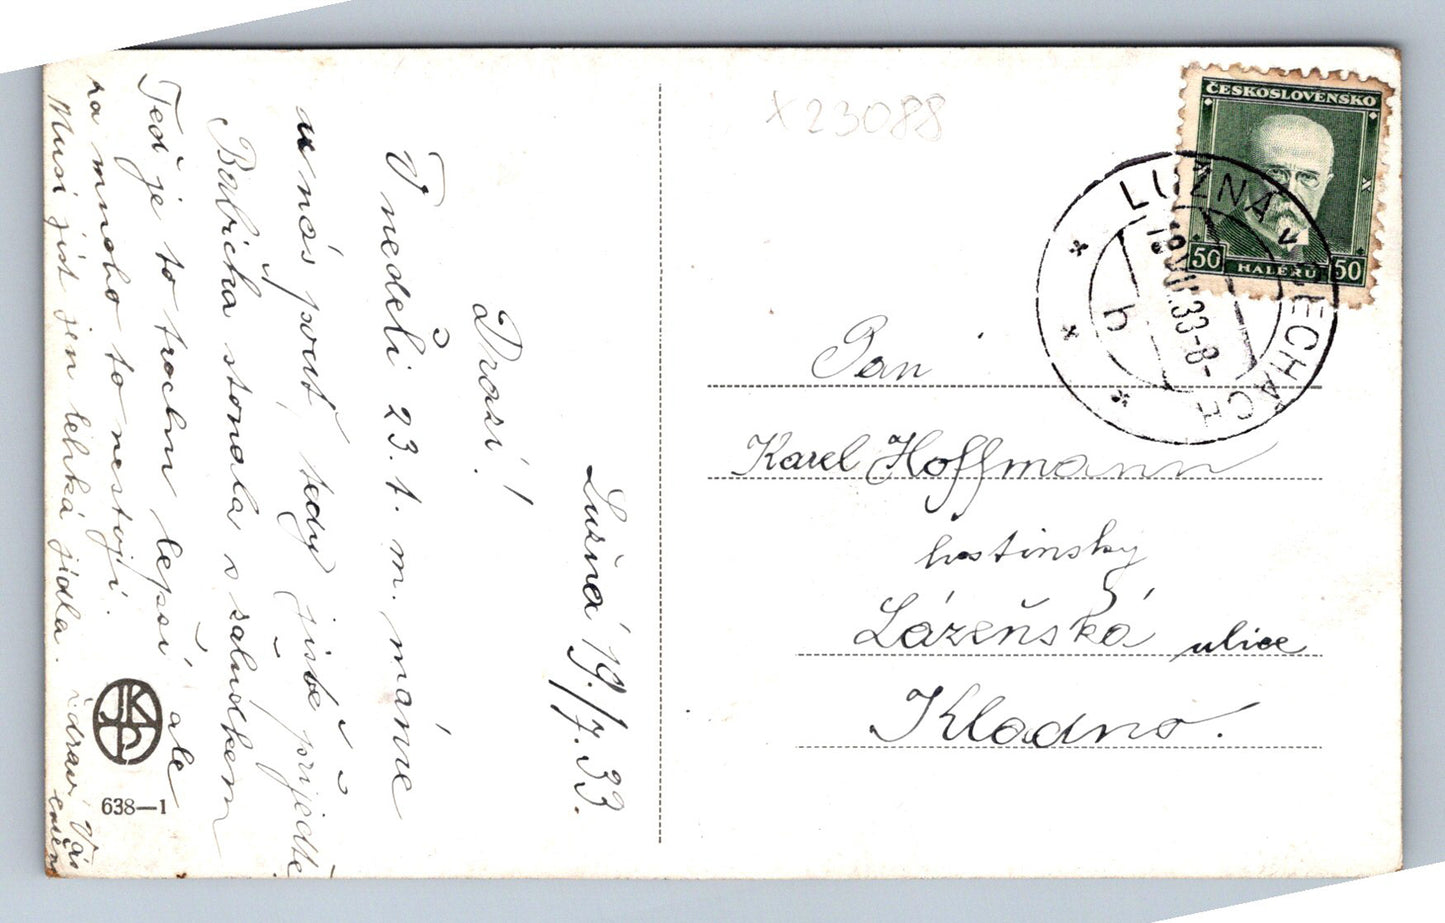 Lužná 19./7.33.
Drazí!
V neděli 23. t. m. máme
u nás pouť, tedy jistě přijeďte.
Babička stonala s žaludkem
Teď je to trochu lepší ale
za mnoho to nestojí.
Musí jíst jen lehká jídla. Zdraví Vás
638—1
X23088
ČESKOSLOVENSKO
50 HALÉŘŮ 50
LUŽNÁ v ČECHÁCH
VII.33-8-
b
Pan
Karel Hoffmann
hostinský
Lázeňská ulice
Kladno.